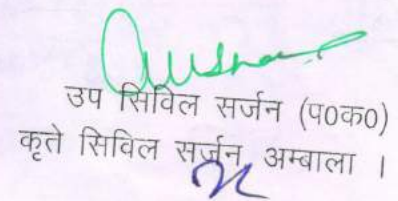 उप सिविल सर्जन (प०क०)
कृते सिविल सर्जन, अम्बाला ।